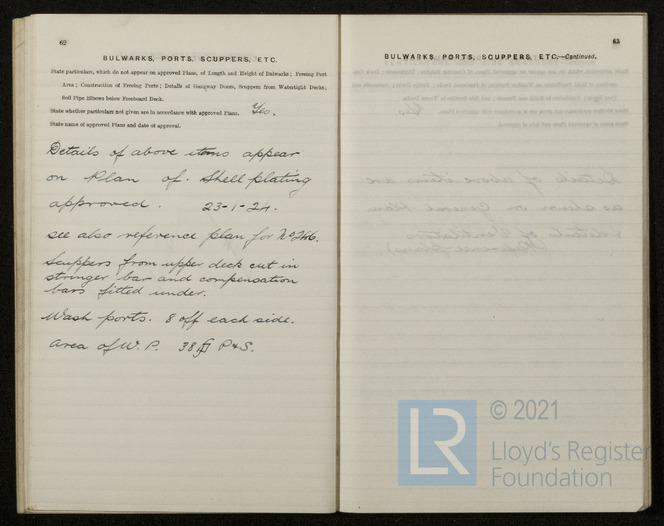 62
BULWARKS, PORTS, SCUPPERS, ETC.
State particulars, which do not appear on approved Plans, of Length and Height of Bulwarks; Freeing Port
Area; Construction of Freeing Ports; Details of Gangway Doors, Scuppers from Watertight Decks;
Soil Pipe Elbows below Freeboard Deck.
State whether particulars not given are in accordance with approved Plans. Yes.
State name of approved Plans and date of approval.
Details of above items appear
on Plan of. Shell plating
approved. 23-1-24.
see also reference plan for No 746.
Scuppers from upper deck cut in
stringer bar and compensation
bars fitted under.
Wash ports. 8 off each side.
Area of W.P. 38 P&S.
63
BULWARKS, PORTS, SCUPPERS, ETC.—Continued.
LR
© 2021
Lloyd's Register
Foundation